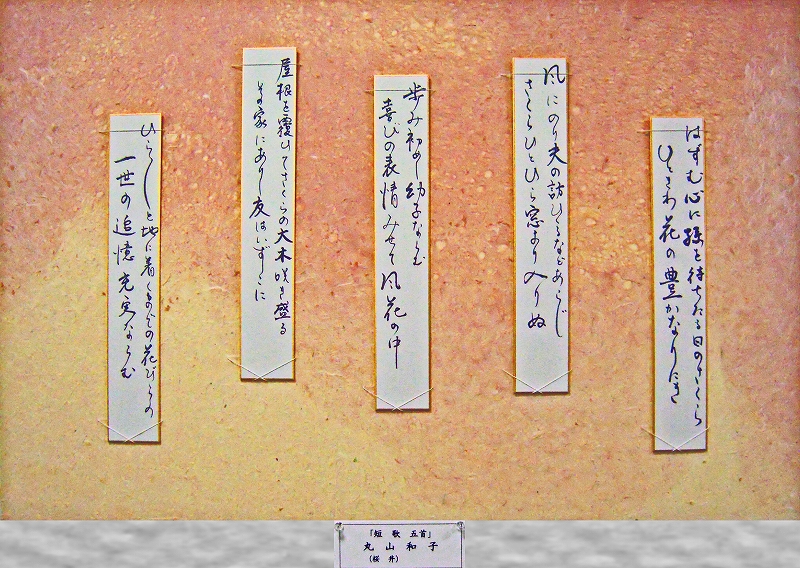 はずむ心に孫を待ちたる日のさくら
ひときわ花の豊かなりにき
風にのり夫の訪ひくるなどあらじ
さくらひとひら窓より入りぬ
歩み初めし幼子ならむ
喜びの表情みせて風花の中
屋根を覆ひてさくらの大木咲き盛る
その家にありし友はいずこに
ひらひらと地に着くまでの花びらの
一世の追憶充実ならむ
「短 歌 五首」
丸 山 和 子
(桜 井)